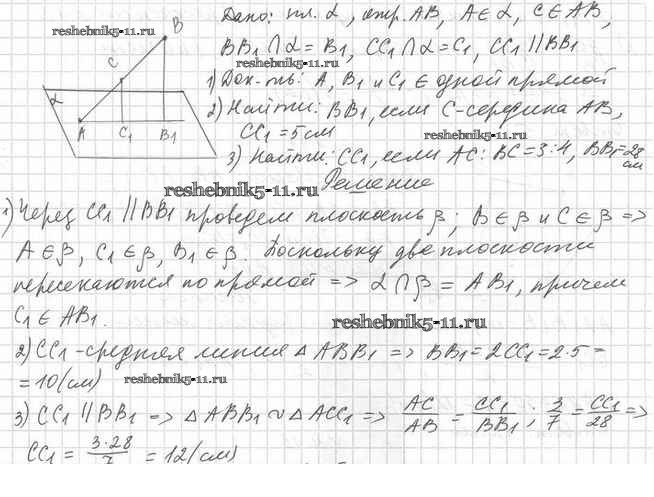 Дано: пл. α, отр. AB, A∈α, C∈AB,
reshebnik5-11.ru
BB₁∩α=B₁, CC₁∩α=C₁, CC₁∥BB₁
reshebnik5-11.ru
B
C
α
A C₁ B₁
1) Док-ть: A, B₁ и C₁ ∈ одной прямой
2) Найти: BB₁, если C-середина AB,
CC₁=5см
reshebnik5-11.ru
3) Найти: CC₁, если AC:BC=3:4, BB₁=28 см
reshebnik5-11.ru
Решение
1) Через CC₁∥BB₁ проведем плоскость β; B∈β и C∈β =>
A∈β, C₁∈β, B₁∈β. Поскольку две плоскости
пересекаются по прямой => α∩β = AB₁, причем
C₁∈AB₁.
reshebnik5-11.ru
2) CC₁-средняя линия △ABB₁ => BB₁=2CC₁=2·5=
=10(см)
reshebnik5-11.ru
3) CC₁∥BB₁ => △ABB₁ ~ △ACC₁ => AC/AB = CC₁/BB₁; 3/7 = CC₁/28 =>
CC₁ = 3·28/7 = 12(см)